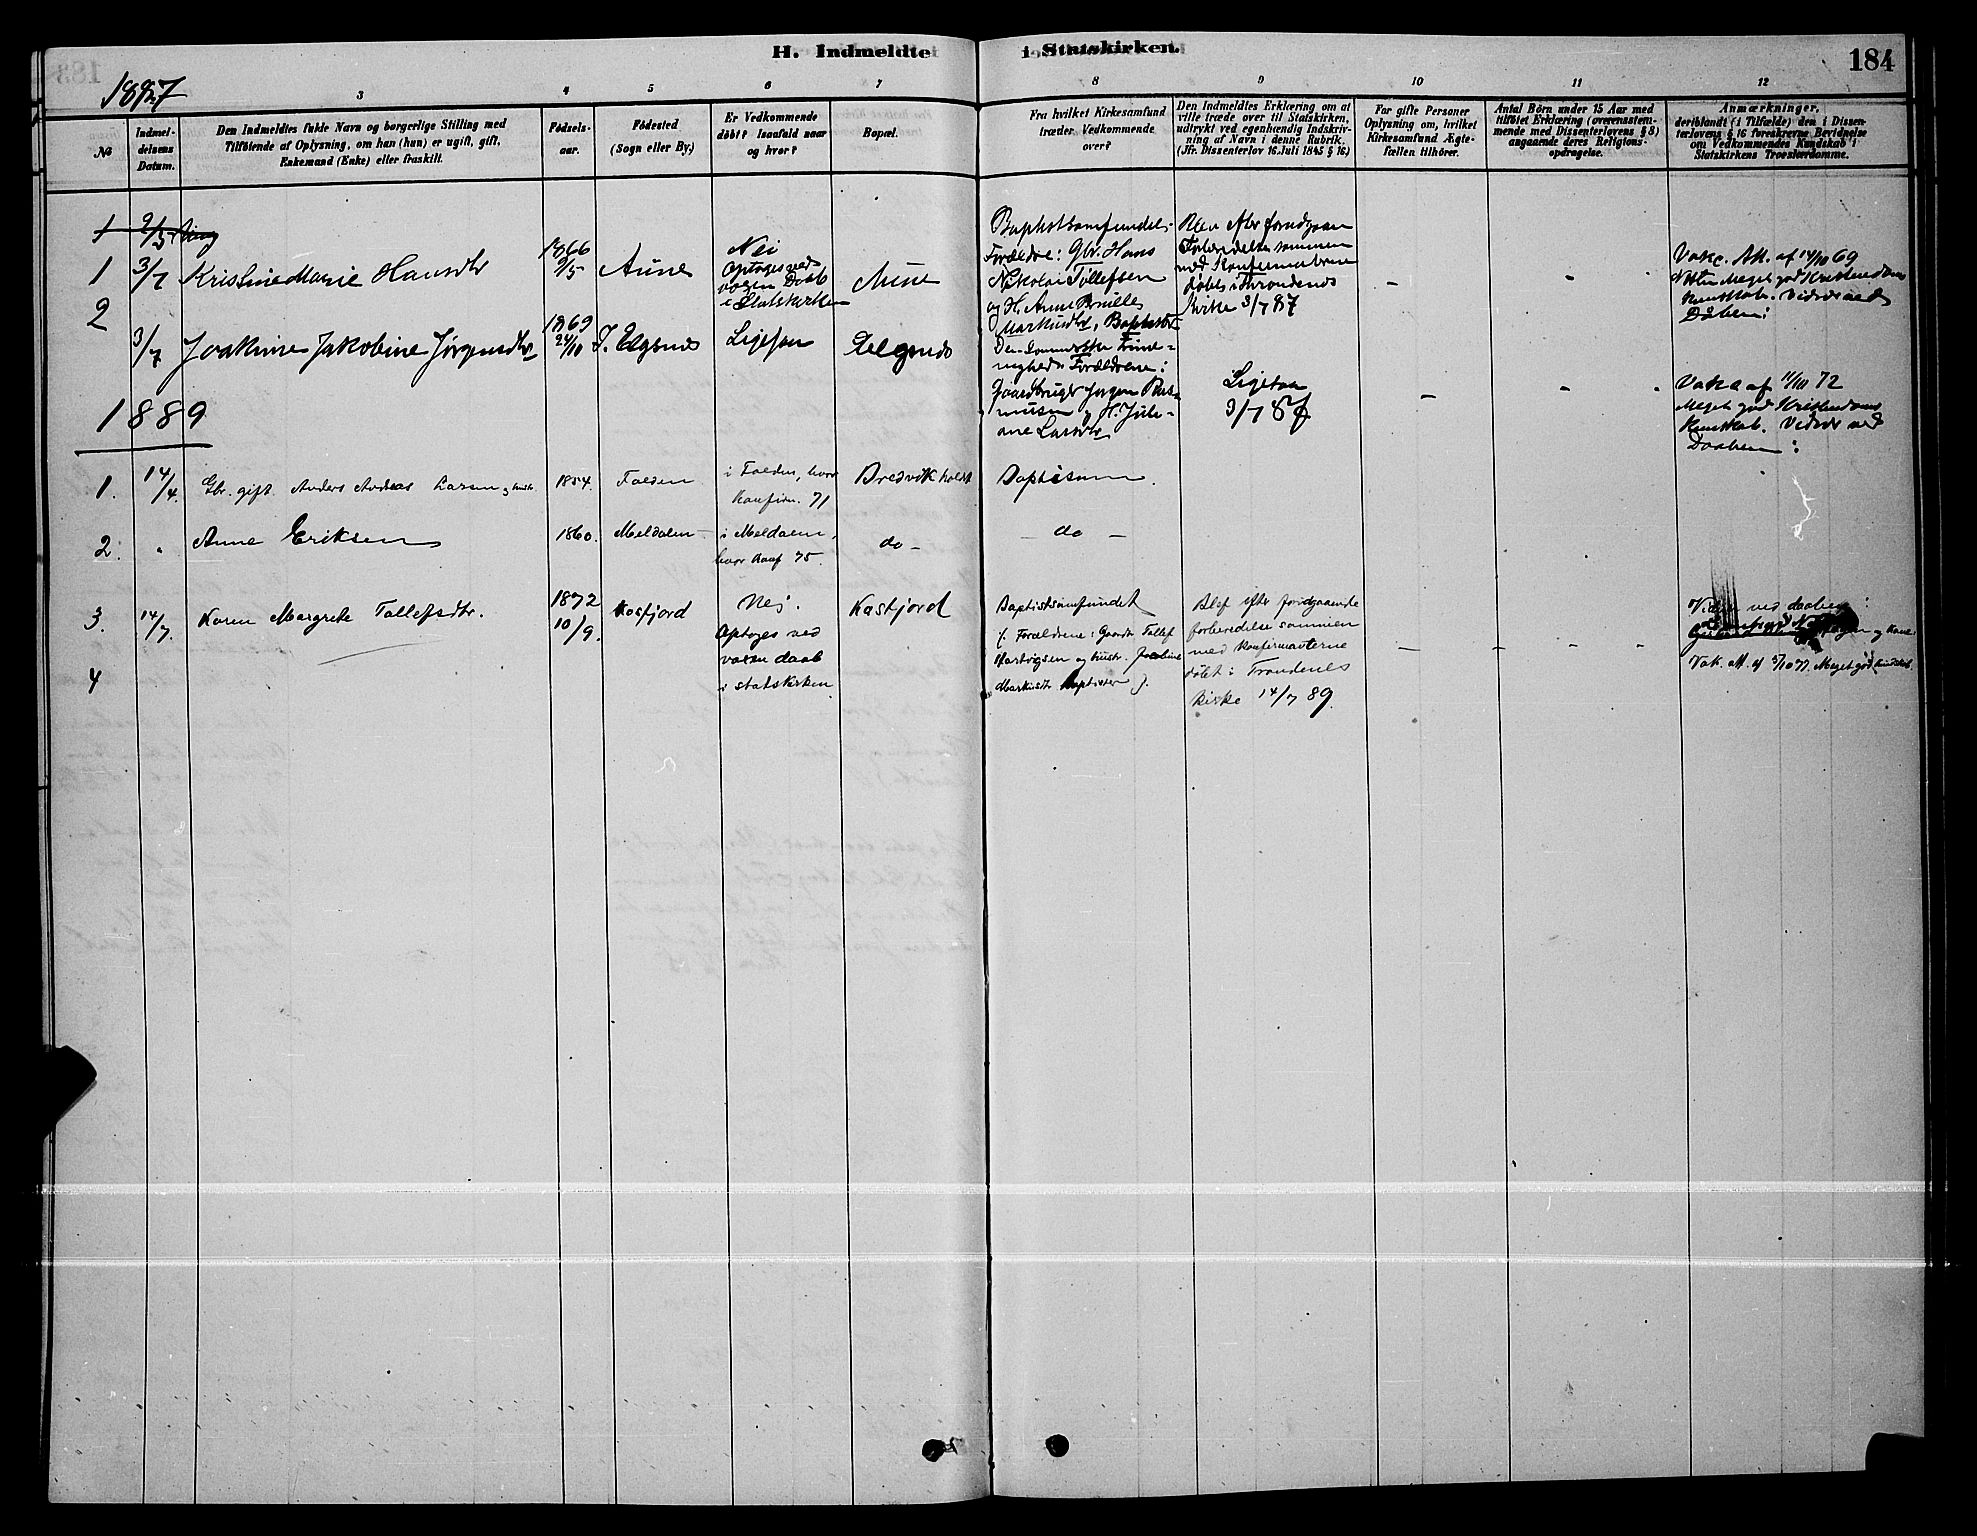 H. Indmeldte i Statskirken.
184
1887
3 4 5 6 7 8 9 10 11 12
No
Indmel-
delsens
Datum.
Den Indmeldtes fulde Navn og borgerlige Stilling med
Tilföiende af Oplysning, om han (hun) er ugift, gift,
Enkemand (Enke) eller fraskilt.
Födsels-
aar.
Födested
(Sogn eller By.)
Er Vedkommende
döbt? Isaafald naar
og hvor?
Bopæl.
Fra hvilket Kirkesamfund
træder Vedkommende
over?
Den Indmeldtes Erklæring om at
ville træde over til Statskirken,
udtrykt ved egenhændig Indskriv-
ning af Navn i denne Rubrik.
(Jfr. Dissenterlov 16 Juli 1845 § 16)
For gifte Personer
Oplysning om, hvilket
Kirkesamfund Ægte-
fællen tilhörer.
Antal Börn under 15 Aar med
tilföiet Erklæring (overensstem-
mende med Dissenterlovens § 8)
angaaende deres Religions-
opdragelse.
Anmærkninger,
deriblandt (i Tilfælde) den i Dissen-
terlovens § 16 foreskrevne Bevidnelse
om Vedkommendes Kundskab i
Statskirkens Troeslærdomme.
1
1 3/7 Kristine Marie Hansdtr
1866
9/5
Aune
Nei
Optoges ved
voxen Daab
i Statskirken
Aune
Baptistsamfundet.
Forældre: Gbr. Hans
Nikolai Tollefsen
og H. Anne
Markusdtr, Baptister
Blev efter foregaaen
Forberedelse sammen
med Konfirmanterne
døbt i Throndenes
Kirke 3/7 87
-
-
14/10 69
Meget god Kristendoms
Kundskab. Vidner ved
Daaben:
2
3/7 Joakime Jakobine Jørgensdtr
1869
24/10
Elgsnes
Ligesaa
Elgsnes
Forældrene:
Gaardbruger Jørgen Ras-
musen og H. Juli-
ane Larsdtr
Ligesaa
3/7 87
-
-
af 11/10 72
Meget god Kristendoms
Kundskab. Vidner ved
Daaben:
1889
1. 14/4. Gbr. gift. Anders Andreas Larsen og hustr.
1854.
Folden
i Folden, hvor
Konfirm. 71
Bredvik
Baptisme.
2. " Anne Eriksen
1860.
Meldalen
i Meldalen,
hvor Konf 75.
do -
- do -
3. 14/7. Karen Margrete Tollefsdtr.
1872
10/9.
Kasfjord
Nej.
Optoges ved
voxen daab
i statskirken
Kasfjord
Baptistsamfundet
(. Forældrene: Gaardbr. Tollef
Hartvigsen og hustr. Jacobine
Markusdtr Baptister ).
Blef efter foregaaende
forberedelse sammen
med Konfirmanterne
døbt i Trondenes
Kirke 14/7 89.
-
- - -
Vidner ved daaben:
og Kone
77. Meget god kundskab.
4